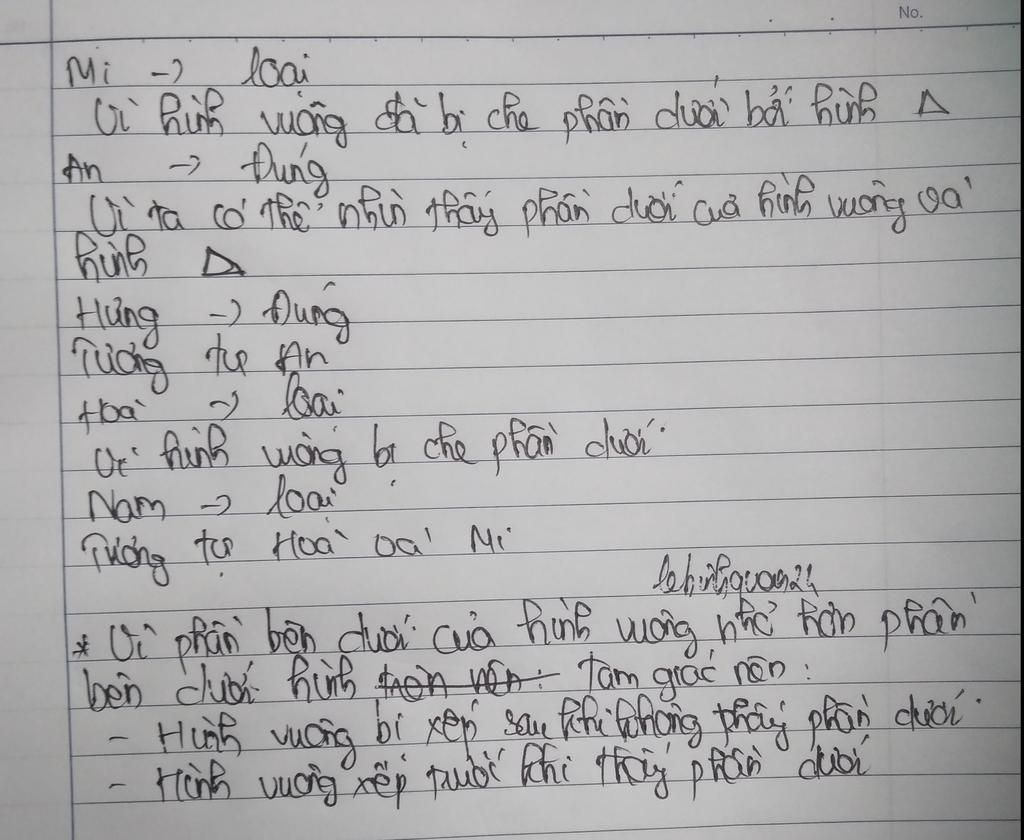 No.
Mi -> loại
Vì hình vuông đã bị che phần dưới bởi hình Δ
An -> Đúng
Vì ta có thể nhìn thấy phần dưới của hình vuông và
hình Δ
Hưng -> Đúng
Tương tự An
Hoà -> loại
Vì hình vuông bị che phần dưới.
Nam -> loại
Tương tự Hoà và Mi
lehinhquan24
* Vì phần bên dưới của hình vuông nhỏ hơn phần
bên dưới hình trên nên: tam giác nên:
- Hình vuông bí xếp sau khi không thấy phần dưới.
- Hình vuông xếp trước khi thấy phần dưới